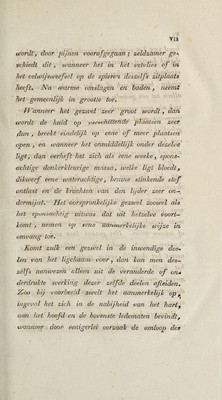 VII
wordt, door pijnen voorafgegaan; zeldzamer ge-
schiedt dit, wanneer het in het vetvlies of in
het celwijsweefsel op de spieren deszelfs zitplaats
heeft. Na warme omslagen en baden, neemt
het gemeenlijk in grootte toe.
Wanneer het gezwel zeer groot wordt, dan
wordt de huid op verschillende plaatsen zeer
dun, breekt eindelijk op eene of meer plaatsen
open, en wanneer het onmiddellijk onder dezelve
ligt, dan verheft het zich als eene weeke, spons-
achtige donkerkleurige massa, welke ligt bloedt,
dikwerf eene waterachtige, bruine stinkende stof
ontlast en de krachten van den lijder zeer on-
dermijnt. Het oorspronkelijke gezwel zoowel als
het sponsachtig uitwas dat uit hetzelve voort-
komt, nemen op eene aanmerkelijke wijze in
omvang toe.
Komt zulk een gezwel in de inwendige dee-
len van het ligchaam voor, dan kan men des-
zelfs aanwezen alleen uit de veranderde of on-
derdrukte werking dezer zelfde deelen afleiden.
Zoo bij voorbeeld zwelt het aanmerkelijk op,
ingeval het zich in de nabijheid van het hart,
aan het hoofd en de bovenste ledematen bevindt,
waaraan door eenigerlei oorzaak de omloop des